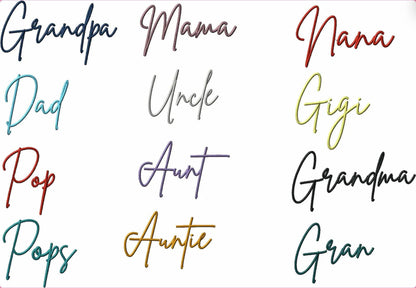 Grandpa Mama Nana
Dad Uncle Gigi
Pop Aunt Grandma
Pops Auntie Gran